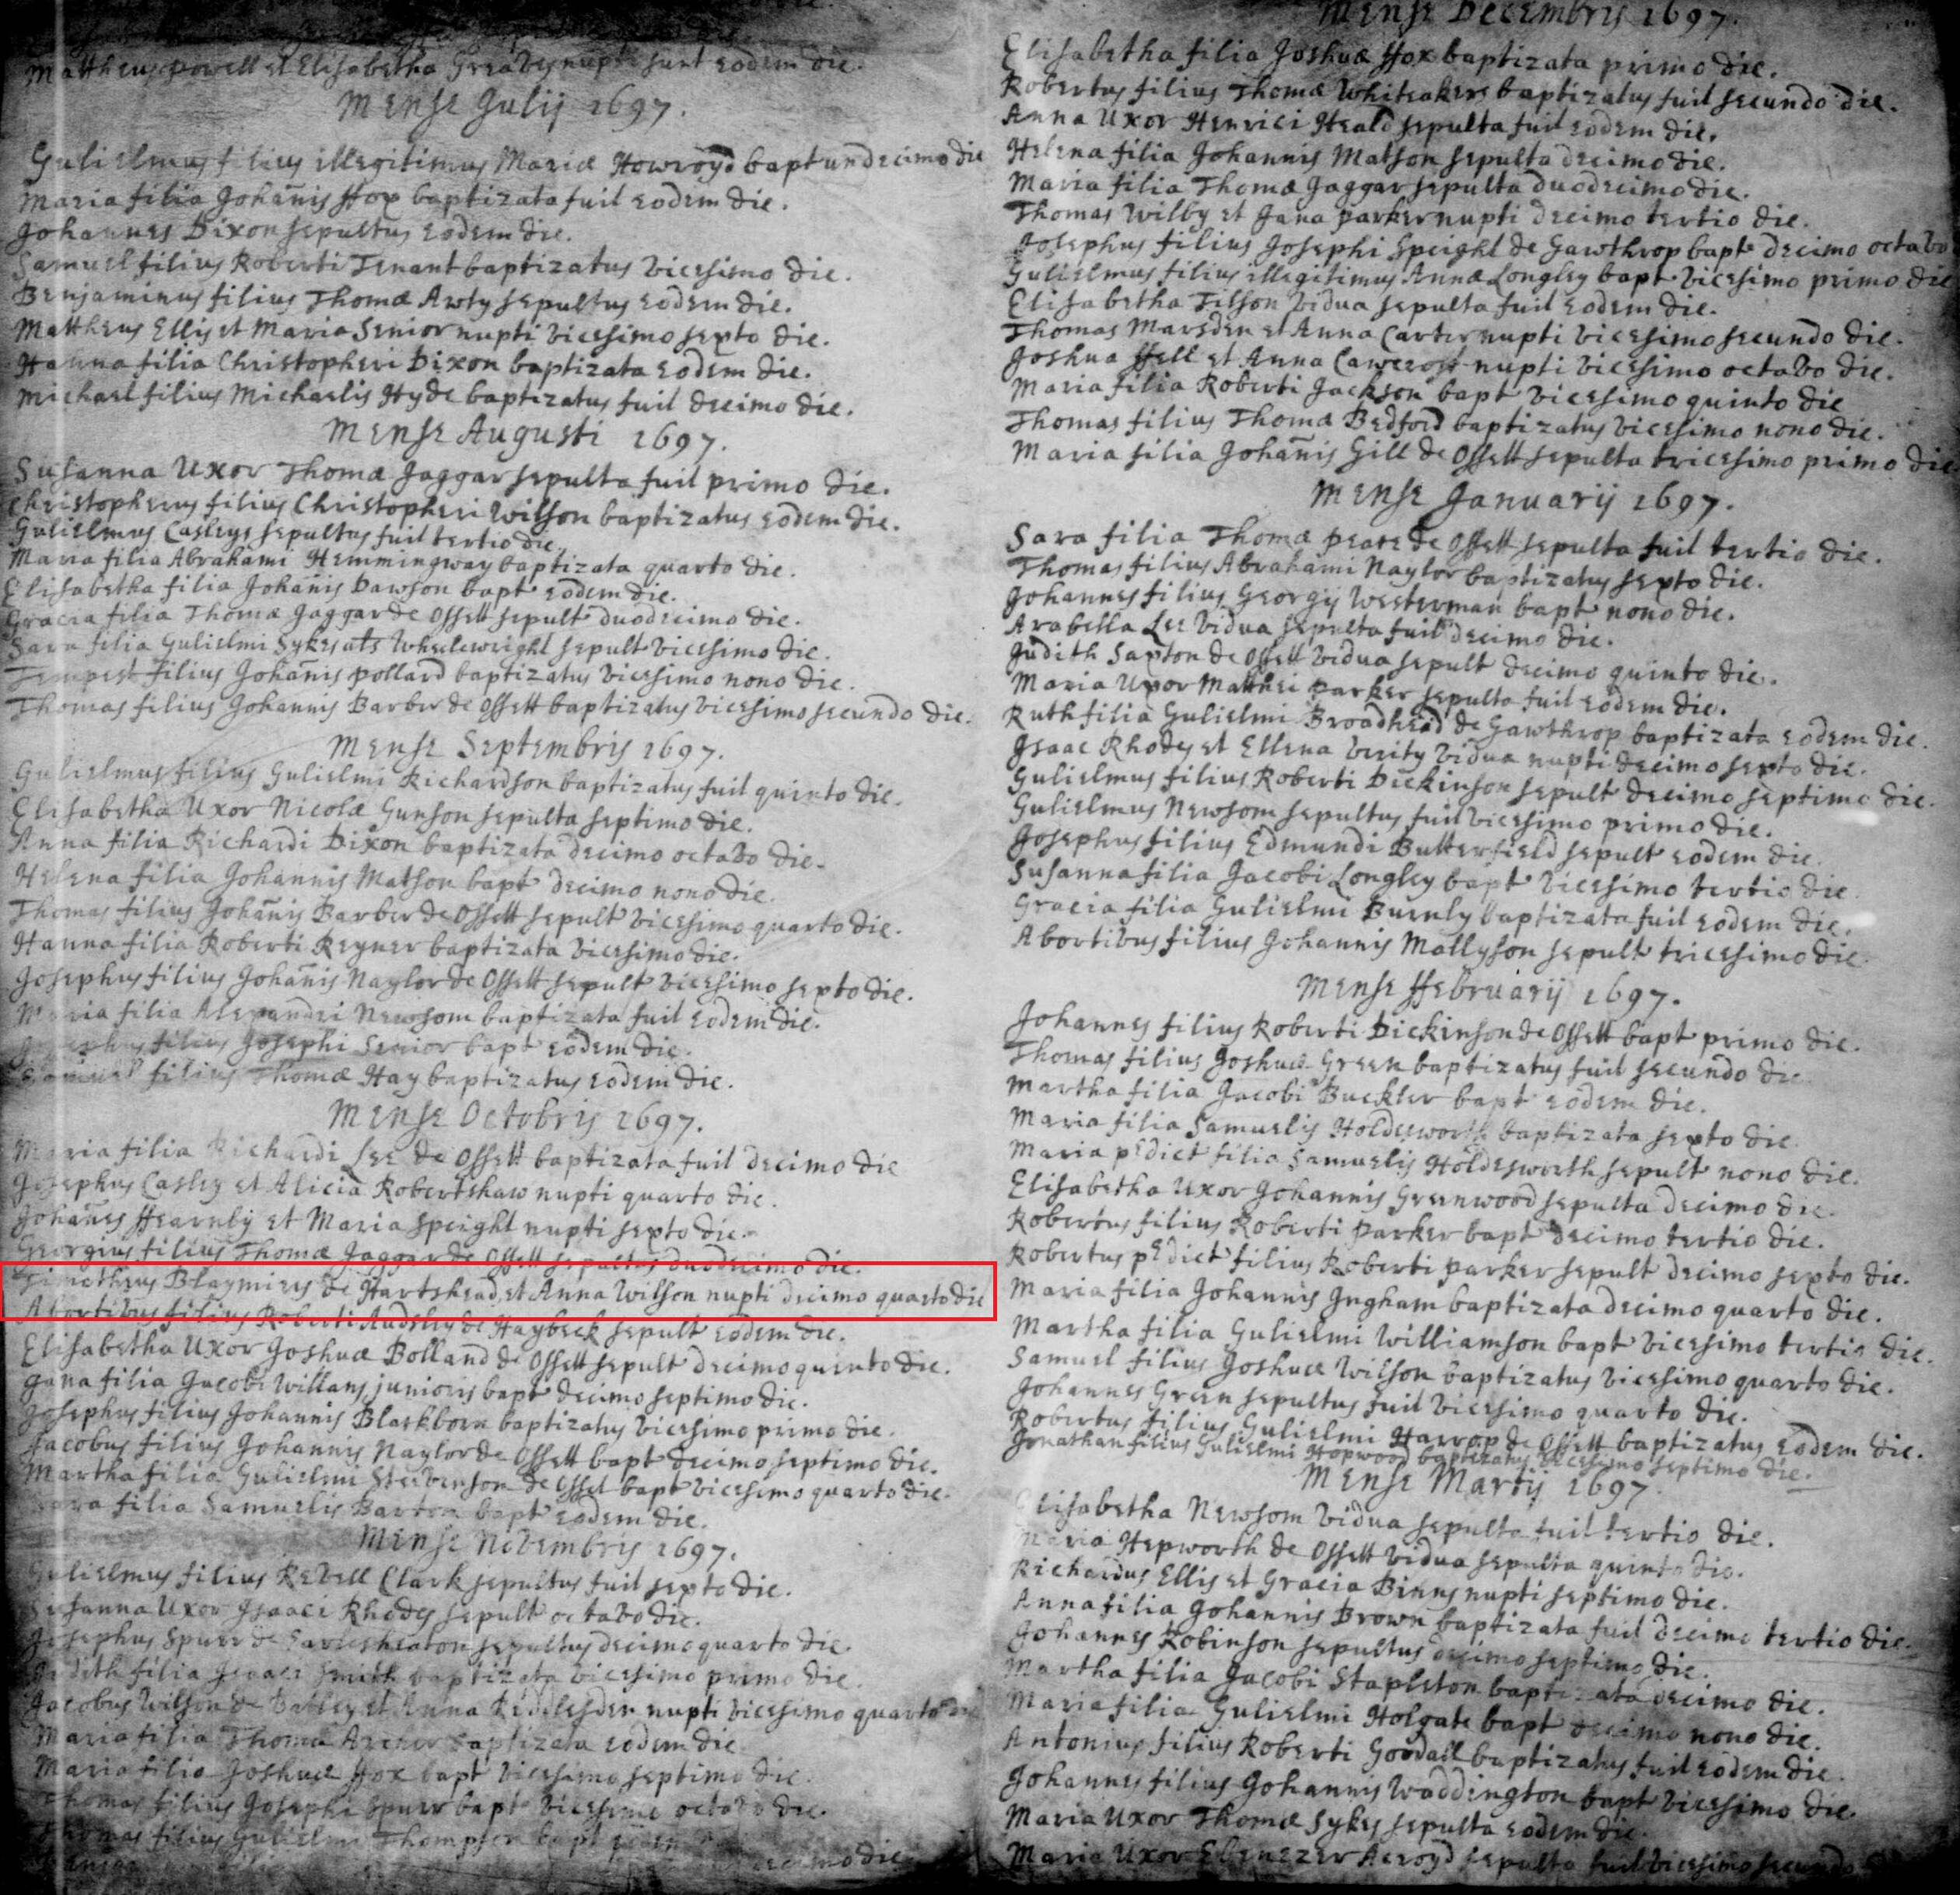 Mattheus Powell et Elisabetha Greaves nupti sunt eodem die.
Mense Julij 1697.
Gulielmus filius illegitimus Mariæ Howroyd bapt undecimo die
Maria filia Johānis Ffox baptizata fuit eodem die.
Johannes Dixon sepultus eodem die.
Samuel filius Roberti Tenant baptizatus vicesimo die.
Benjaminus filius Thomæ Awty sepultus eodem die.
Mattheus Ellis et Maria Senior nupti vicesimo sexto die.
Hanna filia Christopheri Dixon baptizata eodem die.
Michael filius Michaelis Hyde baptizatus fuit decimo die.
Mense Augusti 1697.
Susanna Uxor Thomæ Jaggar sepulta fuit primo die.
Christopherus filius Christopheri Wilson baptizatus eodem die.
Gulielmus Casleys sepultus fuit tertio die.
Maria filia Abrahami Hemmingway baptizata quarto die.
Elisabetha filia Johānis Dawson bapt eodem die.
Gracia filia Thomæ Jaggar de Ossett sepult duodecimo die.
Sara filia Gulielmi Sykes als Wheelewright sepult vicesimo die.
Tempest filius Johānis Pollard baptizatus vicesimo nono die.
Thomas filius Johannis Barber de Ossett baptizatus vicesimo secundo die.
Mense Septembris 1697.
Gulielmus filius Gulielmi Richardson baptizatus fuit quinto die.
Elisabetha Uxor Nicolæ Gunson sepulta septimo die.
Anna filia Richardi Dixon baptizata decimo octavo die.
Helena filia Johannis Matson bapt decimo nono die.
Thomas filius Johānis Barber de Ossett sepult vicesimo quarto die.
Hanna filia Roberti Reyner baptizata vicesimo die.
Josephus filius Johānis Naylor de Ossett sepult vicesimo sexto die.
Maria filia Alexandri Newsom baptizata fuit eodem die.
filius Josephi Senior bapt eodem die.
Samuel filius Thomæ Hay baptizatus eodem die.
Mense Octobris 1697.
Maria filia Richardi Lee de Ossett baptizata fuit decimo die
Josephus Casley et Alicia Robertshaw nupti quarto die.
Johānes Ffearnly et Maria Speight nupti sexto die.
Georgius filius Thomæ Jaggar de Ossett sepultus duodecimo die.
Timotheus Blaymires de Hartshead, et Anna Wilson nupti decimo quarto die
Abortivus filius Roberti Audsley de Haybeck sepult eodem die.
Elisabetha Uxor Joshuæ Bolland de Ossett sepult decimo quinto die.
Jana filia Jacobi Willans junioris bapt decimo septimo die.
Josephus filius Johannis Blackborn baptizatus vicesimo primo die.
Jacobus filius Johannis Naylor de Ossett bapt decimo septimo die.
Martha filia Gulielmi Steivenson de Osset bapt vicesimo quarto die.
Sara filia Samuelis Barton bapt eodem die.
Mense Novembris 1697.
Gulielmus filius Revell Clark sepultus fuit sexto die.
Susanna Uxor Isaaci Rhodes sepult octavo die.
Josephus Spurr de Earlesheaton sepultus decimo quarto die.
Judith filia Isaaci Smith baptizata vicesimo primo die.
Jacobus Wilson de Batley et Anna Riddlesden nupti vicesimo quarto die
Maria filia Thomæ Archer baptizata eodem die
Maria filia Joshuæ Ffox bapt vicesimo septimo die.
Thomas filius Josephi Spurr bapt vicesimo octavo die.
Thomas filius Gulielmi Thompson bapt eodem
decimo die
Mense Decembris 1697.
Elisabetha filia Joshuæ Ffox baptizata primo die.
Robertus filius Thomæ Whiteakers baptizatus fuit secundo die.
Anna Uxor Henrici Heald sepulta fuit eodem die.
Helena filia Johannis Matson sepulta decimo die.
Maria filia Thomæ Jaggar sepulta duodecimo die.
Thomas Wilby et Jana Parker nupti decimo tertio die.
Josephus filius Josephi Speight de Gawthrop bapt decimo octavo
Gulielmus filius illegitimus Annæ Longley bapt vicesimo primo die
Elisabetha Tilson vidua sepulta fuit eodem die.
Thomas Marsden et Anna Carter nupti vicesimo secundo die.
Joshua Ffell et Anna Cawcroft nupti vicesimo octavo die.
Maria filia Roberti Jackson bapt vicesimo quinto die
Thomas filius Thomæ Bedford baptizatus vicesimo nono die.
Maria filia Johānis Gill de Ossett sepulta tricesimo primo die
Mense Januarij 1697.
Sara filia Thomæ Peace de Ossett sepulta fuit tertio die.
Thomas filius Abrahami Naylor baptizatus sexto die.
Johannes filius Georgij Westerman bapt nono die.
Arabella Lee vidua sepulta fuit decimo die.
Judith Saxton de Ossett vidua sepult decimo quinto die.
Maria Uxor Matthei Parker sepulta fuit eodem die.
Ruth filia Gulielmi Broadhead de Gawthrop baptizata eodem die.
Isaac Rhodes et Ellena Verity vidua nupti decimo sexto die.
Gulielmus filius Roberti Dickinson sepult decimo septimo die.
Gulielmus Newsom sepultus fuit vicesimo primo die.
Josephus filius Edmundi Butterfield sepult eodem die.
Susanna filia Jacobi Longley bapt vicesimo tertio die
Gracia filia Gulielmi Burnly baptizata fuit eodem die.
Abortivus filius Johannis Mallyson sepult tricesimo die.
Mense Ffebruarij 1697.
Johannes filius Roberti Dickinson de Ossett bapt primo die.
Thomas filius Joshuæ Green baptizatus fuit secundo die
Martha filia Jacobi Buckler bapt eodem die.
Maria filia Samuelis Holdesworth baptizata sexto die
Maria pdict filia Samuelis Holdesworth sepult nono die.
Elisabetha Uxor Johannis Greenwood sepulta decimo die.
Robertus filius Roberti Parker bapt decimo tertio die.
Robertus pdict filius Roberti Parker sepult decimo sexto die.
Maria filia Johannis Ingham baptizata decimo quarto die.
Martha filia Gulielmi Williamson bapt vicesimo tertio die.
Samuel filius Joshuæ Wilson baptizatus vicesimo quarto die.
Johannes Green sepultus fuit vicesimo quarto die.
Robertus filius Gulielmi Harrop de Ossett baptizatus eodem die.
Jonathan filius Gulielmi Hopwood baptizatus vicesimo septimo die.
Mense Martij 1697.
Elisabetha Newsom vidua sepulta fuit tertio die.
Maria Hepworth de Ossett vidua sepulta quinto die.
Richardus Ellis et Gracia Binns nupti septimo die.
Anna filia Johannis Brown baptizata fuit decimo tertio die.
Johannes Robinson sepultus decimo septimo die.
Martha filia Jacobi Stapleton baptizata decimo die.
Maria filia Gulielmi Holgate bapt decimo nono die.
Antonius filius Roberti Goodall baptizatus fuit eodem die.
Johannes filius Johannis Waddington bapt vicesimo die.
Maria Uxor Thomæ Sykes sepulta eodem die.
Maria Uxor Ebenezer Acroyd sepulta fuit vicesimo secundo